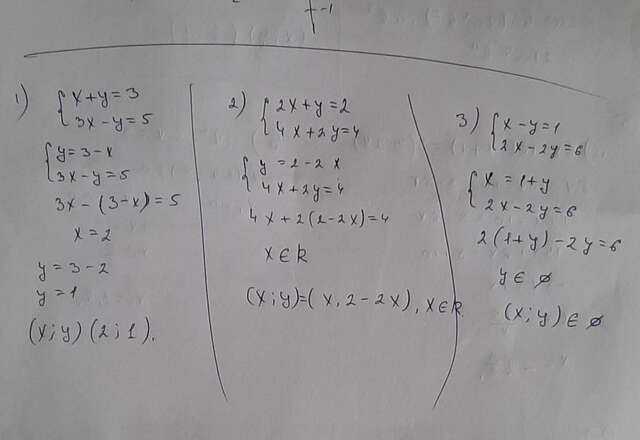 -1
1) { x+y=3
3x-y=5
{ y=3-x
3x-y=5
3x-(3-x)=5
x=2
y=3-2
y=1
(x;y) (2;1).
2) { 2x+y=2
4x+2y=4
{ y=2-2x
4x+2y=4
4x+2(2-2x)=4
x∈R
(x;y)=(x,2-2x), x∈R.
3) { x-y=1
2x-2y=6
{ x=1+y
2x-2y=6
2(1+y)-2y=6
y∈∅
(x;y)∈∅